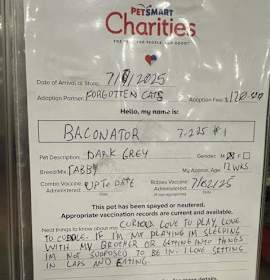 PETSMART
Charities
Date of Arrival at Store: 7/8/2025
Adoption Partner: FORGOTTEN CATS
Adoption Fee:
Hello, my name is:
BACONATOR 7-225 #1
Pet Description: DARK GREY
Gender: M F
Breed/Mix: TABBY
My Approx. Age: 12 WKS
Combo Vaccine Administered: UP TO DATE
Rabies Vaccine Administered: 7/02/25
This pet has been spayed or neutered.
Appropriate vaccination records are current and available.
Need things to know about me: CURIOUS LOVE TO PLAY, LOVE
TO CUDDLE. IF I'M NOT PLAYING IM SLEEPING
WITH MY BROTHER OR GETTING INTO THINGS
IM NOT SUPPOSED TO BE IN. I LOVE SITTING
IN LAPS AND EATING.
for more details.